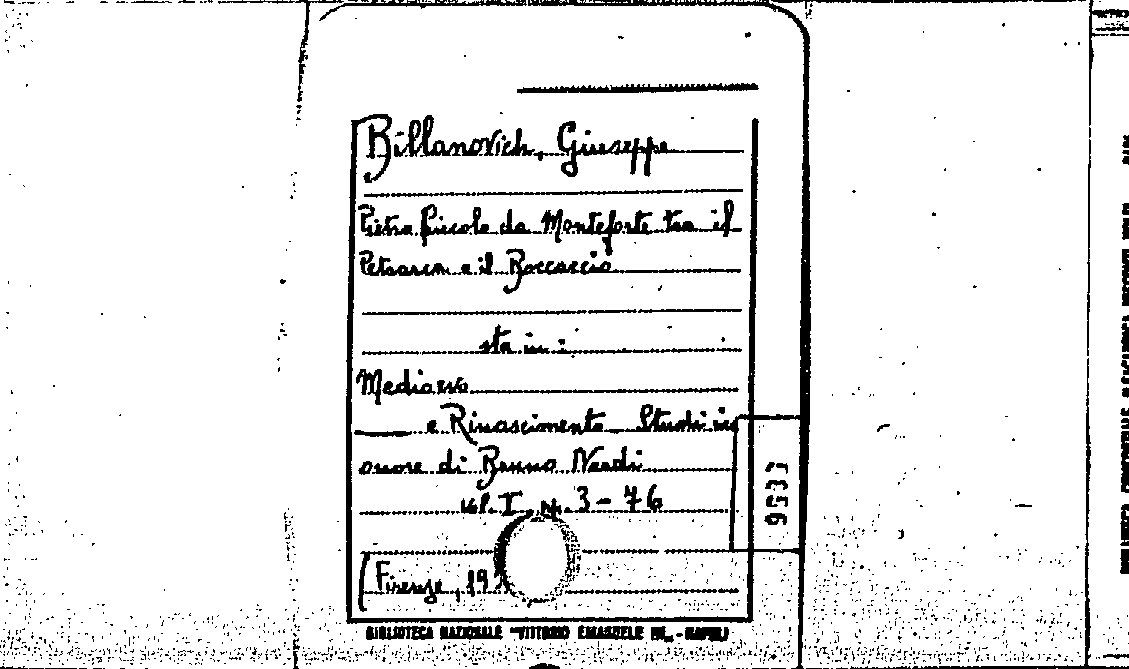 Billanovich, Giuseppe
Pietro Piccolo da Monteforte tra il
Petrarca e il Boccaccio
sta in:
Medioevo
e Rinascimento Studi in
onore di Bruno Nardi
vol. I pp. 3-76
(Firenze, 19
9533
BIBLIOTECA NAZIONALE "VITTORIO EMANUELE III" - NAPOLI